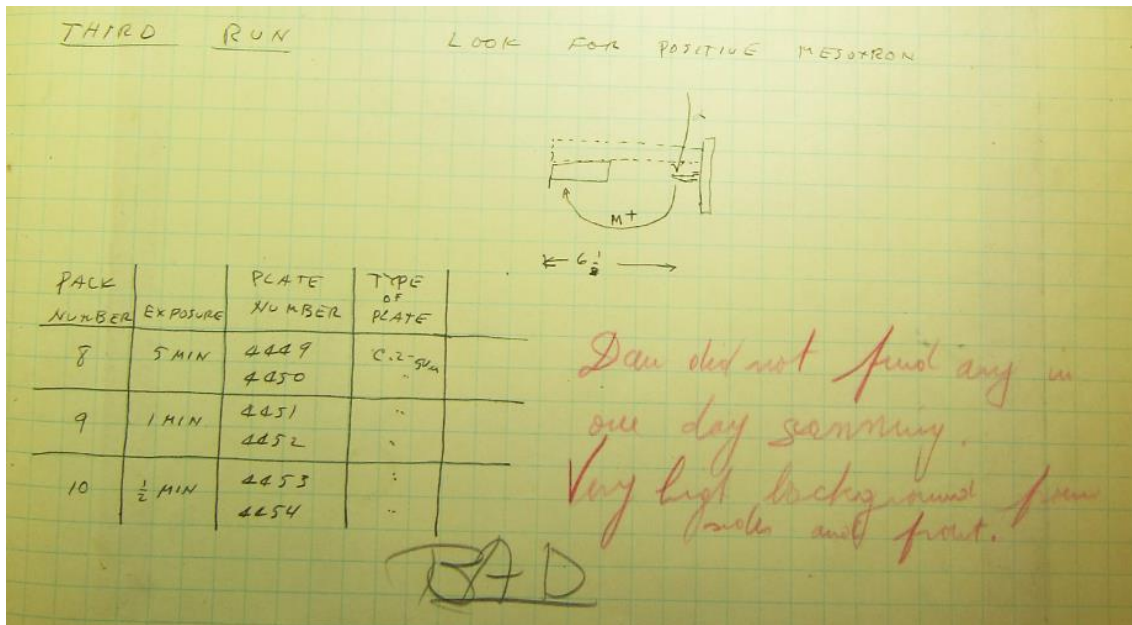 THIRD RUN
LOOK FOR POSITIVE MESOTRON
M+
6 1/8
PACK NUMBER | EXPOSURE | PLATE NUMBER | TYPE OF PLATE
8 | 5 MIN | 4449 | C.2-50µ
4450 | "
9 | 1 MIN | 4451 | "
4452 | "
10 | 1/2 MIN | 4453 | "
4454 | "
Dan did not find any in
one day scanning.
Very high background from
sides and front.
BAD